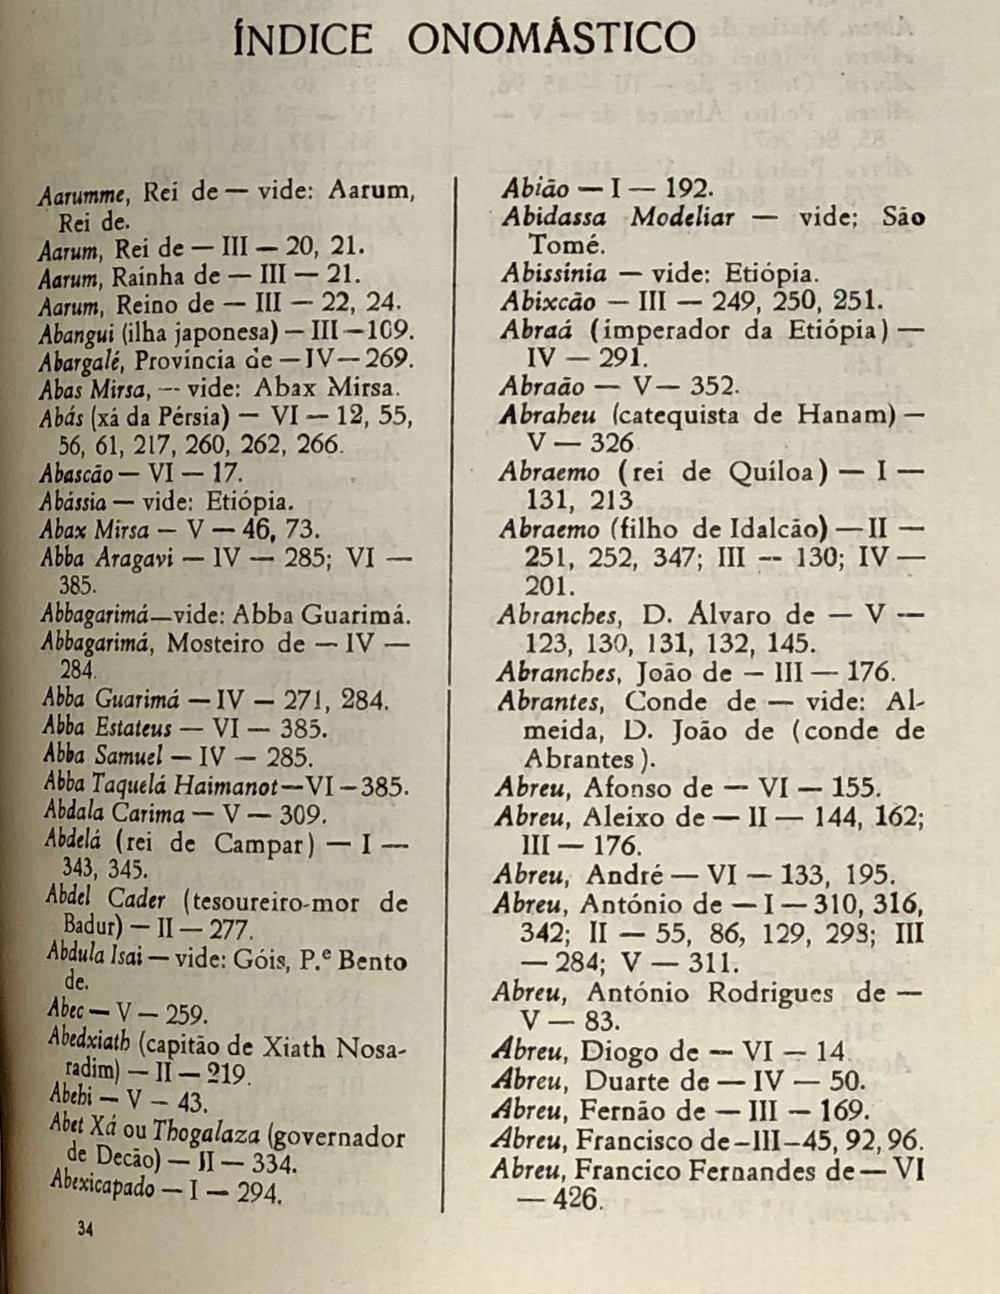 ÍNDICE ONOMÁSTICO
Aarumme, Rei de — vide: Aarum,
Rei de.
Aarum, Rei de — III — 20, 21.
Aarum, Rainha de — III — 21.
Aarum, Reino de — III — 22, 24.
Abangui (ilha japonesa) — III — 109.
Abargalé, Província de — IV — 269.
Abas Mirsa, — vide: Abax Mirsa.
Abás (xá da Pérsia) — VI — 12, 55,
56, 61, 217, 260, 262, 266.
Abascão — VI — 17.
Abássia — vide: Etiópia.
Abax Mirsa — V — 46, 73.
Abba Aragavi — IV — 285; VI —
385.
Abbagarimá—vide: Abba Guarimá.
Abbagarimá, Mosteiro de — IV —
284.
Abba Guarimá — IV — 271, 284.
Abba Estateus — VI — 385.
Abba Samuel — IV — 285.
Abba Taquelá Haimanot—VI—385.
Abdala Carima — V — 309.
Abdelá (rei de Campar) — I —
343, 345.
Abdel Cader (tesoureiro-mor de
Badur) — II — 277.
Abdula Isai — vide: Góis, P.e Bento
de.
Abec — V — 259.
Abedxiath (capitão de Xiath Nosa-
radim) — II — 219.
Abehi — V — 43.
Abet Xá ou Thogalaza (governador
de Decão) — II — 334.
Abexicapado — I — 294.
34
Abião — I — 192.
Abidassa Modeliar — vide; São
Tomé.
Abissínia — vide: Etiópia.
Abixcão — III — 249, 250, 251.
Abraá (imperador da Etiópia) —
IV — 291.
Abraão — V — 352.
Abraheu (catequista de Hanam) —
V — 326
Abraemo (rei de Quíloa) — I —
131, 213
Abraemo (filho de Idalcão) — II —
251, 252, 347; III — 130; IV —
201.
Abranches, D. Álvaro de — V —
123, 130, 131, 132, 145.
Abranches, João de — III — 176.
Abrantes, Conde de — vide: Al-
meida, D. João de (conde de
Abrantes).
Abreu, Afonso de — VI — 155.
Abreu, Aleixo de — II — 144, 162;
III — 176.
Abreu, André — VI — 133, 195.
Abreu, António de — I — 310, 316,
342; II — 55, 86, 129, 293; III
— 284; V — 311.
Abreu, António Rodrigues de —
V — 83.
Abreu, Diogo de — VI — 14
Abreu, Duarte de — IV — 50.
Abreu, Fernão de — III — 169.
Abreu, Francisco de—III—45, 92, 96.
Abreu, Francico Fernandes de — VI
— 426.